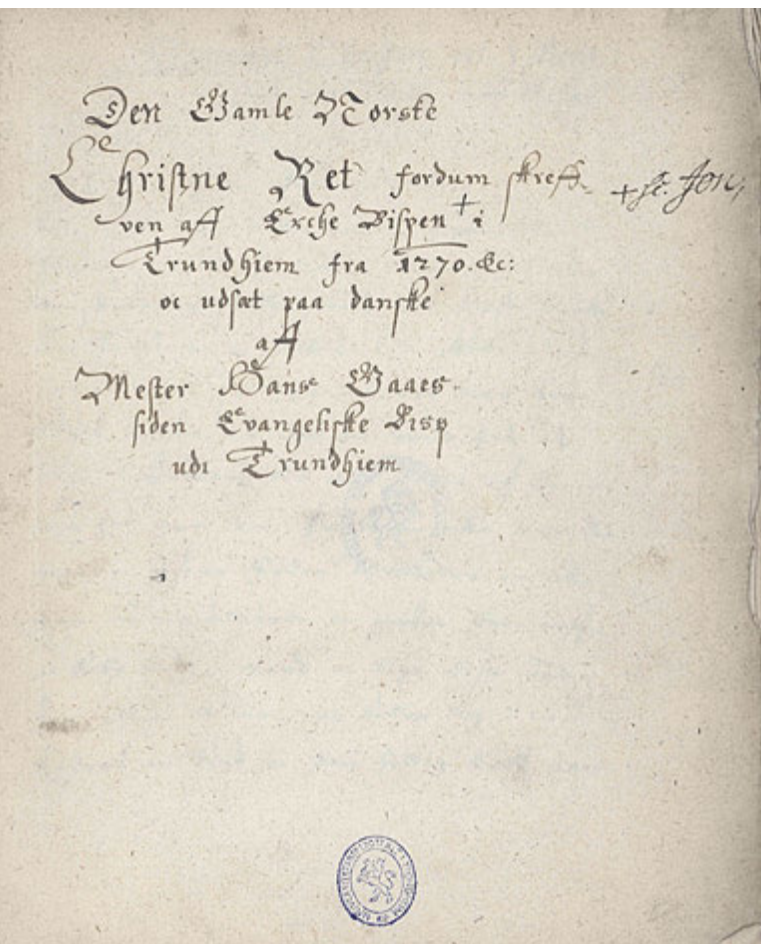 Den Gamle Norske
Christne Ret fordum skreff-
ven aff Erche Bispen + i
Trundhiem fra 1270. &c:
oc udsæt paa danske
aff
Mester Hans Gaaes
siden Evangeliske Bisp
udi Trundhiem
+ Jon